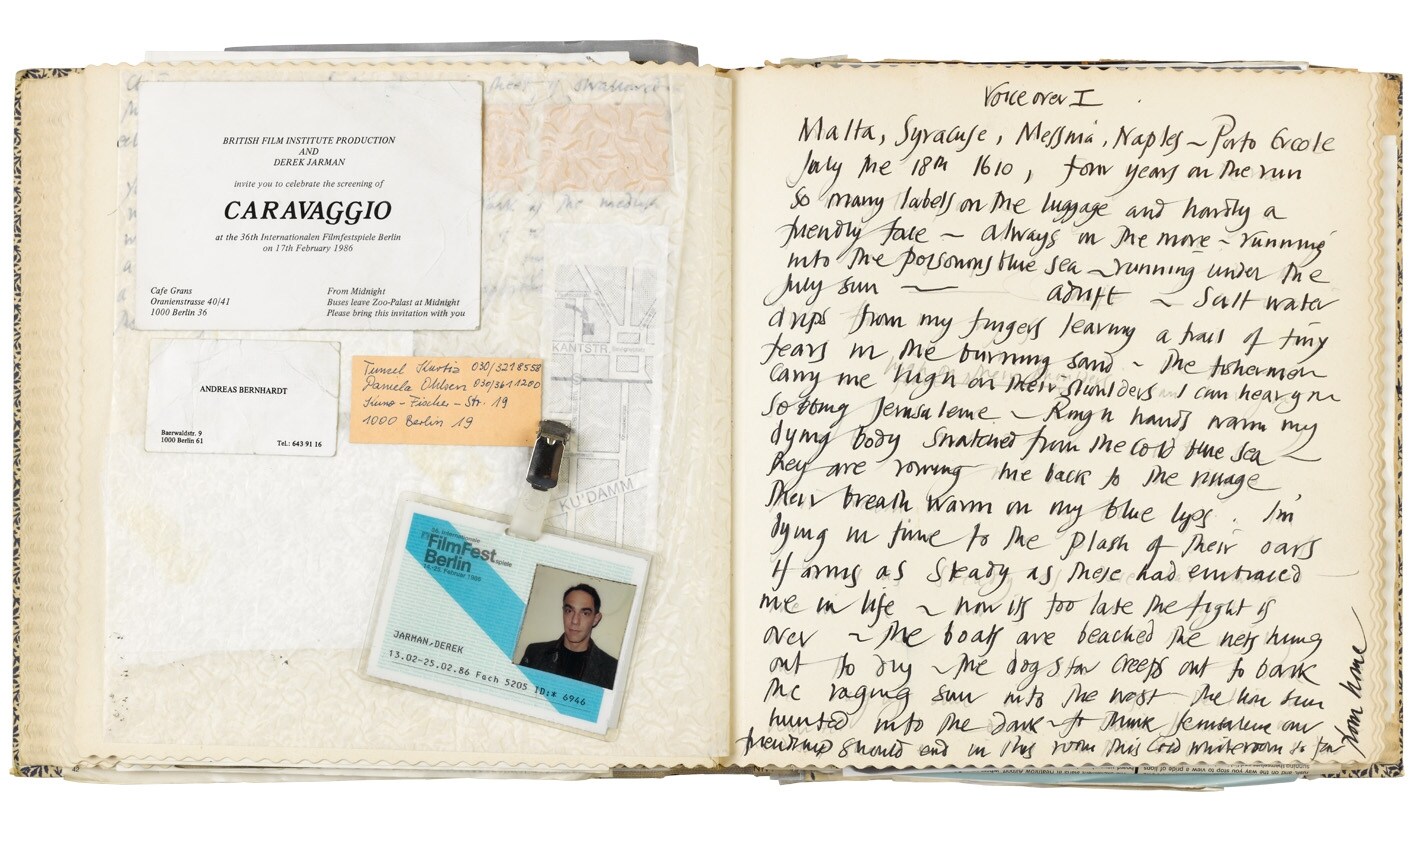 BRITISH FILM INSTITUTE PRODUCTION
AND
DEREK JARMAN
invite you to celebrate the screening of
CARAVAGGIO
at the 36th Internationalen Filmfestspiele Berlin
on 17th February 1986
Cafe Grans
Oranienstrasse 40/41
1000 Berlin 36
From Midnight
Buses leave Zoo-Palast at Midnight
Please bring this invitation with you
ANDREAS BERNHARDT
Baerwaldstr. 9
1000 Berlin 61
Tel.: 643 91 16
Tuncel Kurtiz 030/3218558
Daniela 030/3611200
Kuno-Fischer-Str. 19
1000 Berlin 19
KANTSTR
KU'DAMM
FilmFest
Berlin
JARMAN,DEREK
13.02-25.02.86 Fach 5205 ID:# 6946
Voice over I
Malta, Syracuse, Messina, Naples ~ Porto Ercole
July the 18th 1610, four years on the run
So many labels on the luggage and hardly a
friendly face ~ always on the move ~ running
into the poisonous blue sea ~ running under the
July sun — adrift ~ Salt water
drips from my fingers leaving a trail of tiny
tears in the burning sand ~ the fishermen
carry me high on their shoulders I can hear you
Sobbing Jerusaleme ~ Rough hands warm my
dying body Snatched from the cold blue sea ~
they are rowing me back to the village
their breath warm on my blue lips. I'm
dying in time to the Plash of their oars
If arms as Steady as these had embraced
me in life ~ now its too late the fight is
over ~ the boats are beached the nets hung
out to dry ~ the dog star creeps out to bark
the raging sun into the west the lion sun
hunted into the dark ~ to think Jerusaleme our
friendship should end in this room this cold white room so far
from home